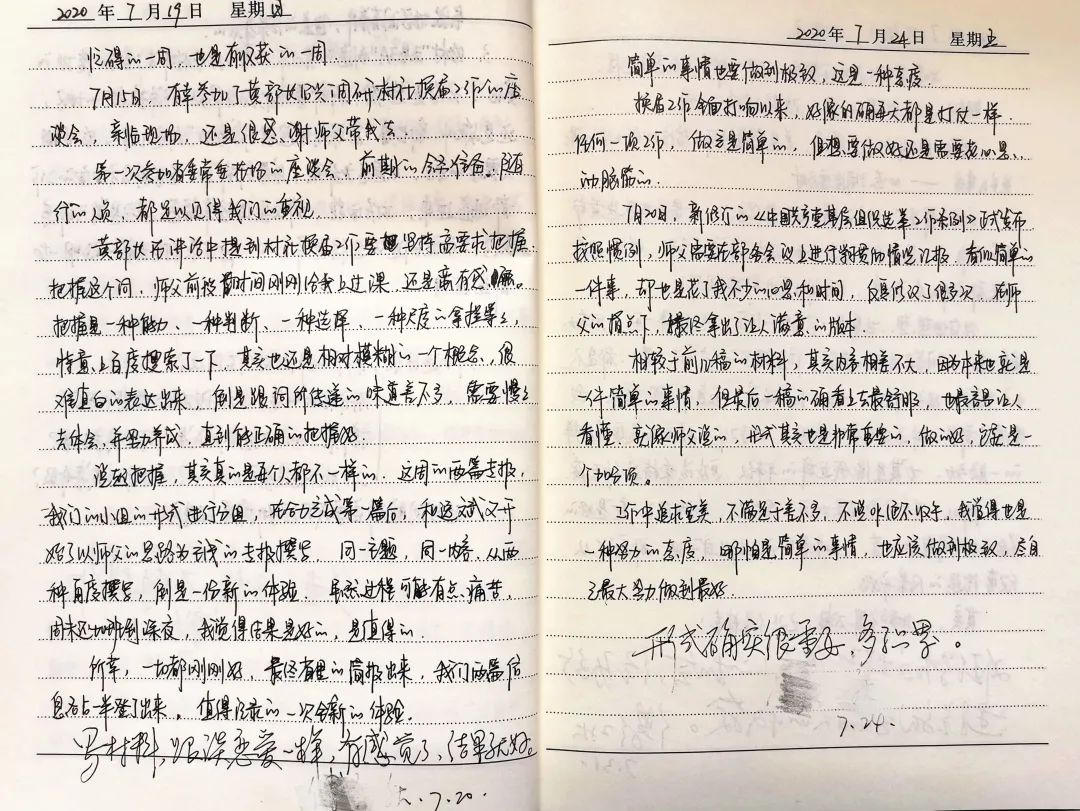 2020 年 7 月 19 日 星期日
忙碌的一周,也是有收获的一周
7月15日,有幸参加了黄部长召开调研村社换届工作的座
谈会,亲临现场,还是很感谢师父带我去
第一次参加省委常委在场的座谈会,前期的会务准备、随
行的人员,都足以见得我们的重视.
黄部长在讲话中提到村社换届工作要坚持高要求把握,
把握这个词,师父前段时间刚刚给我上过课,还是蛮有感触.
把握是一种能力、一种判断、一种选择、一种尺度的拿捏等等,
特意上百度搜索了一下,其实也还是相对模糊的一个概念,很
难直白的表达出来,倒是跟词所传递的味道差不多,需要慢慢
去体会,并努力养成,直到能正确的把握好.
说起把握,其实真的是每个人都不一样的,这周的两篇专报,
我们的小组的形式进行分组,在合力完成第一篇后,和远斌又开
始了以师父的思路为主线的专报撰写,同一主题,同一内容,从两
种角度撰写,倒是一份新的体验,虽然过程可能有点痛苦,
周末还加班到深夜,我觉得结果是好的,是值得的.
所幸,一切都刚刚好,最终省里的简报出来,我们两篇信
息各占一半登了出来,值得记录的一次全新的体验.
写材料,跟谈恋爱一样,有感觉了,结果就好。
7.20.
2020 年 7 月 24 日 星期五
简单的事情也要做到极致,这是一种态度
换届工作全面打响以来,好像的确每天都是打仗一样.
任何一项工作,做完是简单的,但想要做好还是需要花心思、
动脑筋的.
7月20日,新修订的《中国共产党基层组织选举工作条例》正式发布
按照惯例,师父需要在部务会议上进行学习贯彻情况汇报,看似简单的
一件事,却也是花了我不少的心思和时间,反复修改了很多次,在师
父的指点下,最终拿出了让人满意的版本.
相较于前几稿的材料,其实内容相差不大,因为本来也就是
一件简单的事情,但最后一稿的确看上去最舒服,也最容易让人
看懂,就像师父说的,形式其实也是非常重要的,做的好,它是一
个加分项。
工作中追求完美,不满足于差不多,不说非做不可,我觉得也是
一种努力的态度,哪怕是简单的事情,也应该做到极致,尽自
己最大努力做到最好.
形式确实很重要,多积累。
7.24.